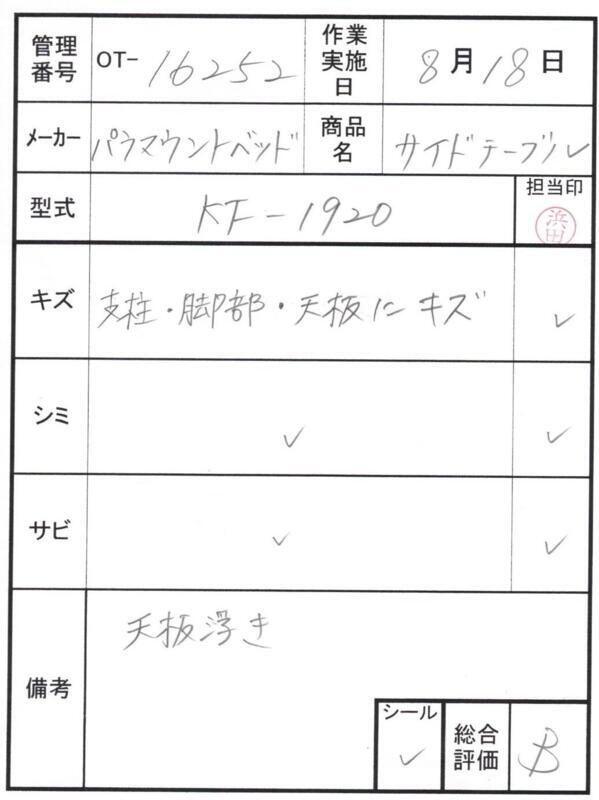 管理番号 OT-16252 作業実施日 8月18日
メーカー パラマウントベッド 商品名 サイドテーブル
型式 KF-1920 担当印 浜田
キズ 支柱・脚部・天板にキズ ✓
シミ ✓ ✓
サビ ✓ ✓
備考 天板浮き
シール ✓ 総合評価 B